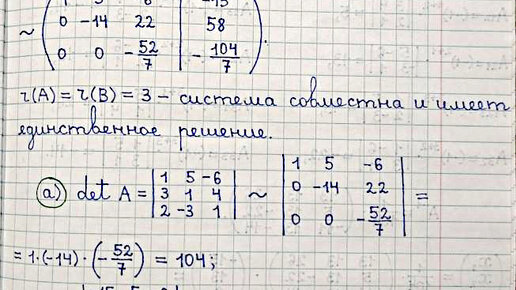 ~ ( 0 -14 22 | 58
0 0 -52/7 | -104/7 ).
r(A) = r(B) = 3 – система совместна и имеет
единственное решение.
а) det A = | 1 5 -6 | ~ | 1 5 -6 | =
| 3 1 4 | | 0 -14 22 |
| 2 -3 1 | | 0 0 -52/7 |
= 1·(-14)·(-52/7) = 104;